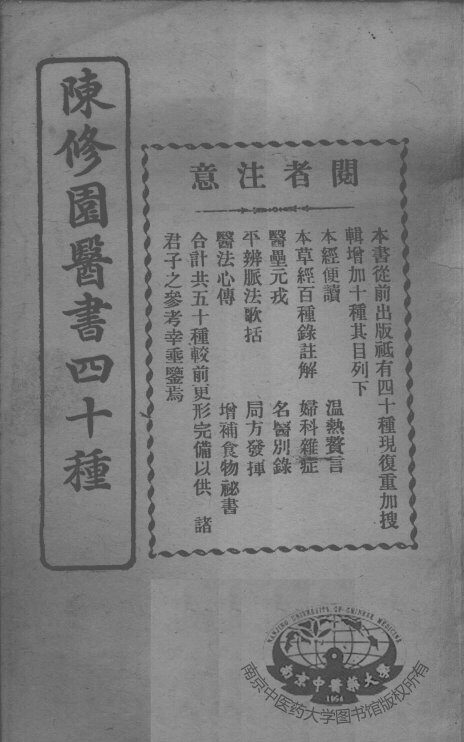 陳修園醫書四十種
閱者注意
本書從前出版祗有四十種現復重加搜
輯增加十種其目列下
本經便讀　溫熱贅言
本草經百種錄註解　婦科雜症
醫壘元戎　名醫別錄
平辨脈法歌括　局方發揮
醫法心傳　增補食物祕書
合計共五十種較前更形完備以供　諸
君子之參考幸垂鑒焉
NANJING UNIVERSITY OF CHINESE MEDICINE
南京中醫藥大學
1954
南京中医药大学图书馆版权所有